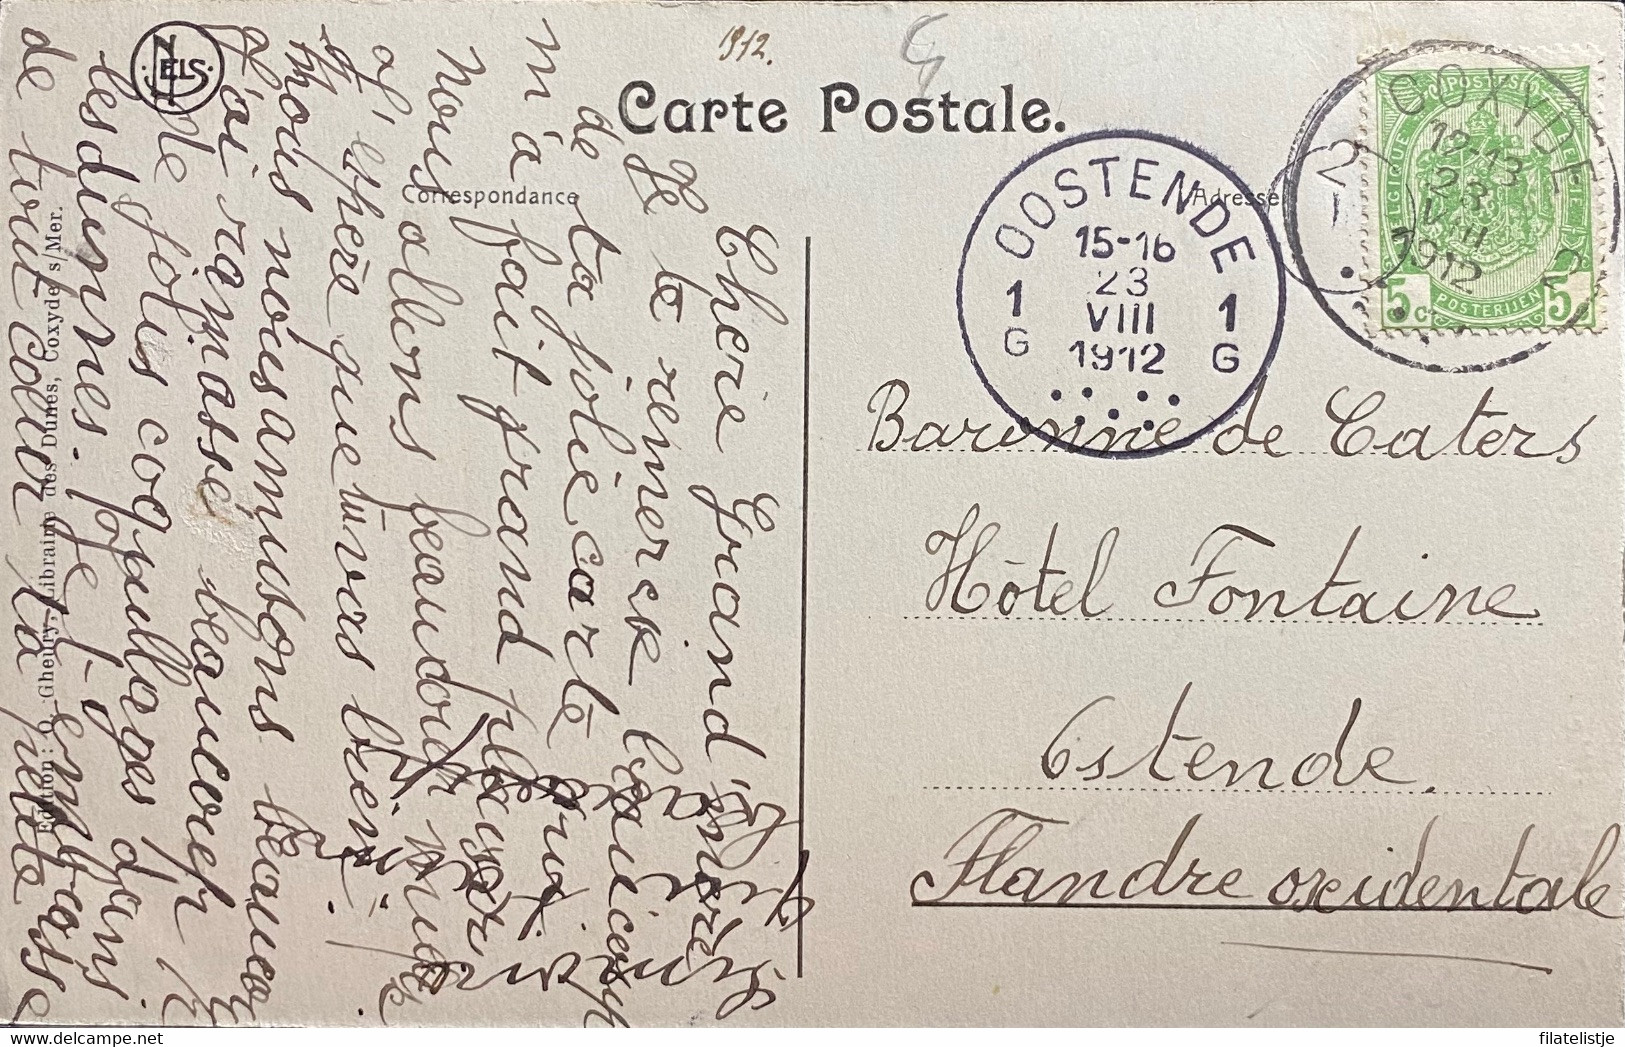 1912.
Carte Postale.
Correspondance
Adresse
NELS
COXYDE
12-13
23
VIII
1912
2
OOSTENDE
15-16
23
VIII
1912
1
G
1
G
POSTES
BELGIQUE
BELGIE
5 c
POSTERIJEN
5 c
Baronne de Caters
Hôtel Fontaine
Ostende.
Flandre oxidentale
Chère Grand'mère
Je te remercie beaucoup
de ta jolie carte qui
m'a fait grand plaisir
Nous allons beaucoup mieux
J'espère que tu vas bien
Nous nous amusons beaucoup
J'ai ramassé beaucoup
de jolis coquillages dans
les dunnes. Je t'embrasse
de tout cœur Ta petite
Edition: O. Gheury, Librairie des Dunes, Coxyde s/Mer.